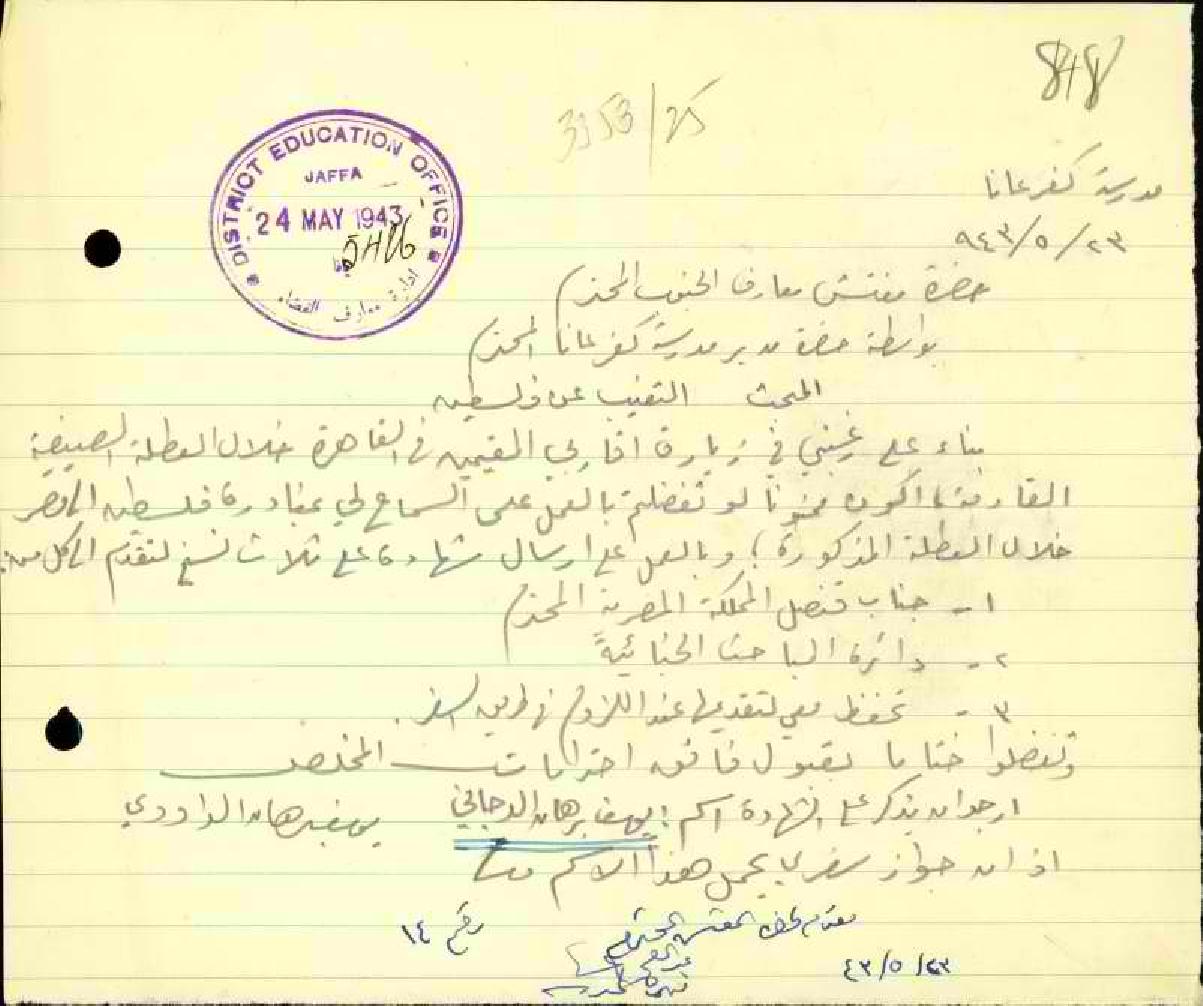 848
3153/25
DISTRICT EDUCATION OFFICE
JAFFA
24 MAY 1943
يافا
ادارة معارف القضاء
مدرسة كفرعانا
٢٣/٥/٩٤٣
حضرة مفتش معارف الجنوب المحترم
بواسطة حضرة مدير مدرسة كفرعانا المحترم
المبحث التغيب عن فلسطين
بناء على رغبتي في زيارة اقاربي المقيمين في القاهرة خلال العطلة الصيفية
القادمة، اكون ممنونا لو تفضلتم بالعمل على السماح لي بمغادرة فلسطين الى مصر
خلال العطلة المذكورة، وبالعمل على ارسال شهادة على ثلاث نسخ لتقدم الى كل من:
١ - جناب قنصل المملكة المصرية المحترم
٢ - دائرة المباحث الجنائية
٣ - تحفظ معي لتقديمها عند اللزوم في طريق السفر.
وتفضلوا ختاما بقبول فائق احتراماتي المخلص
ارجو ان يذكر على الشهادة اسم: يوسف برهان الدجاني يوسف برهان الداودي
اذ ان جواز سفري يحمل هذا الاسم
رقم ١٤
المفتش المحترم
٢٣/٥/٤٣